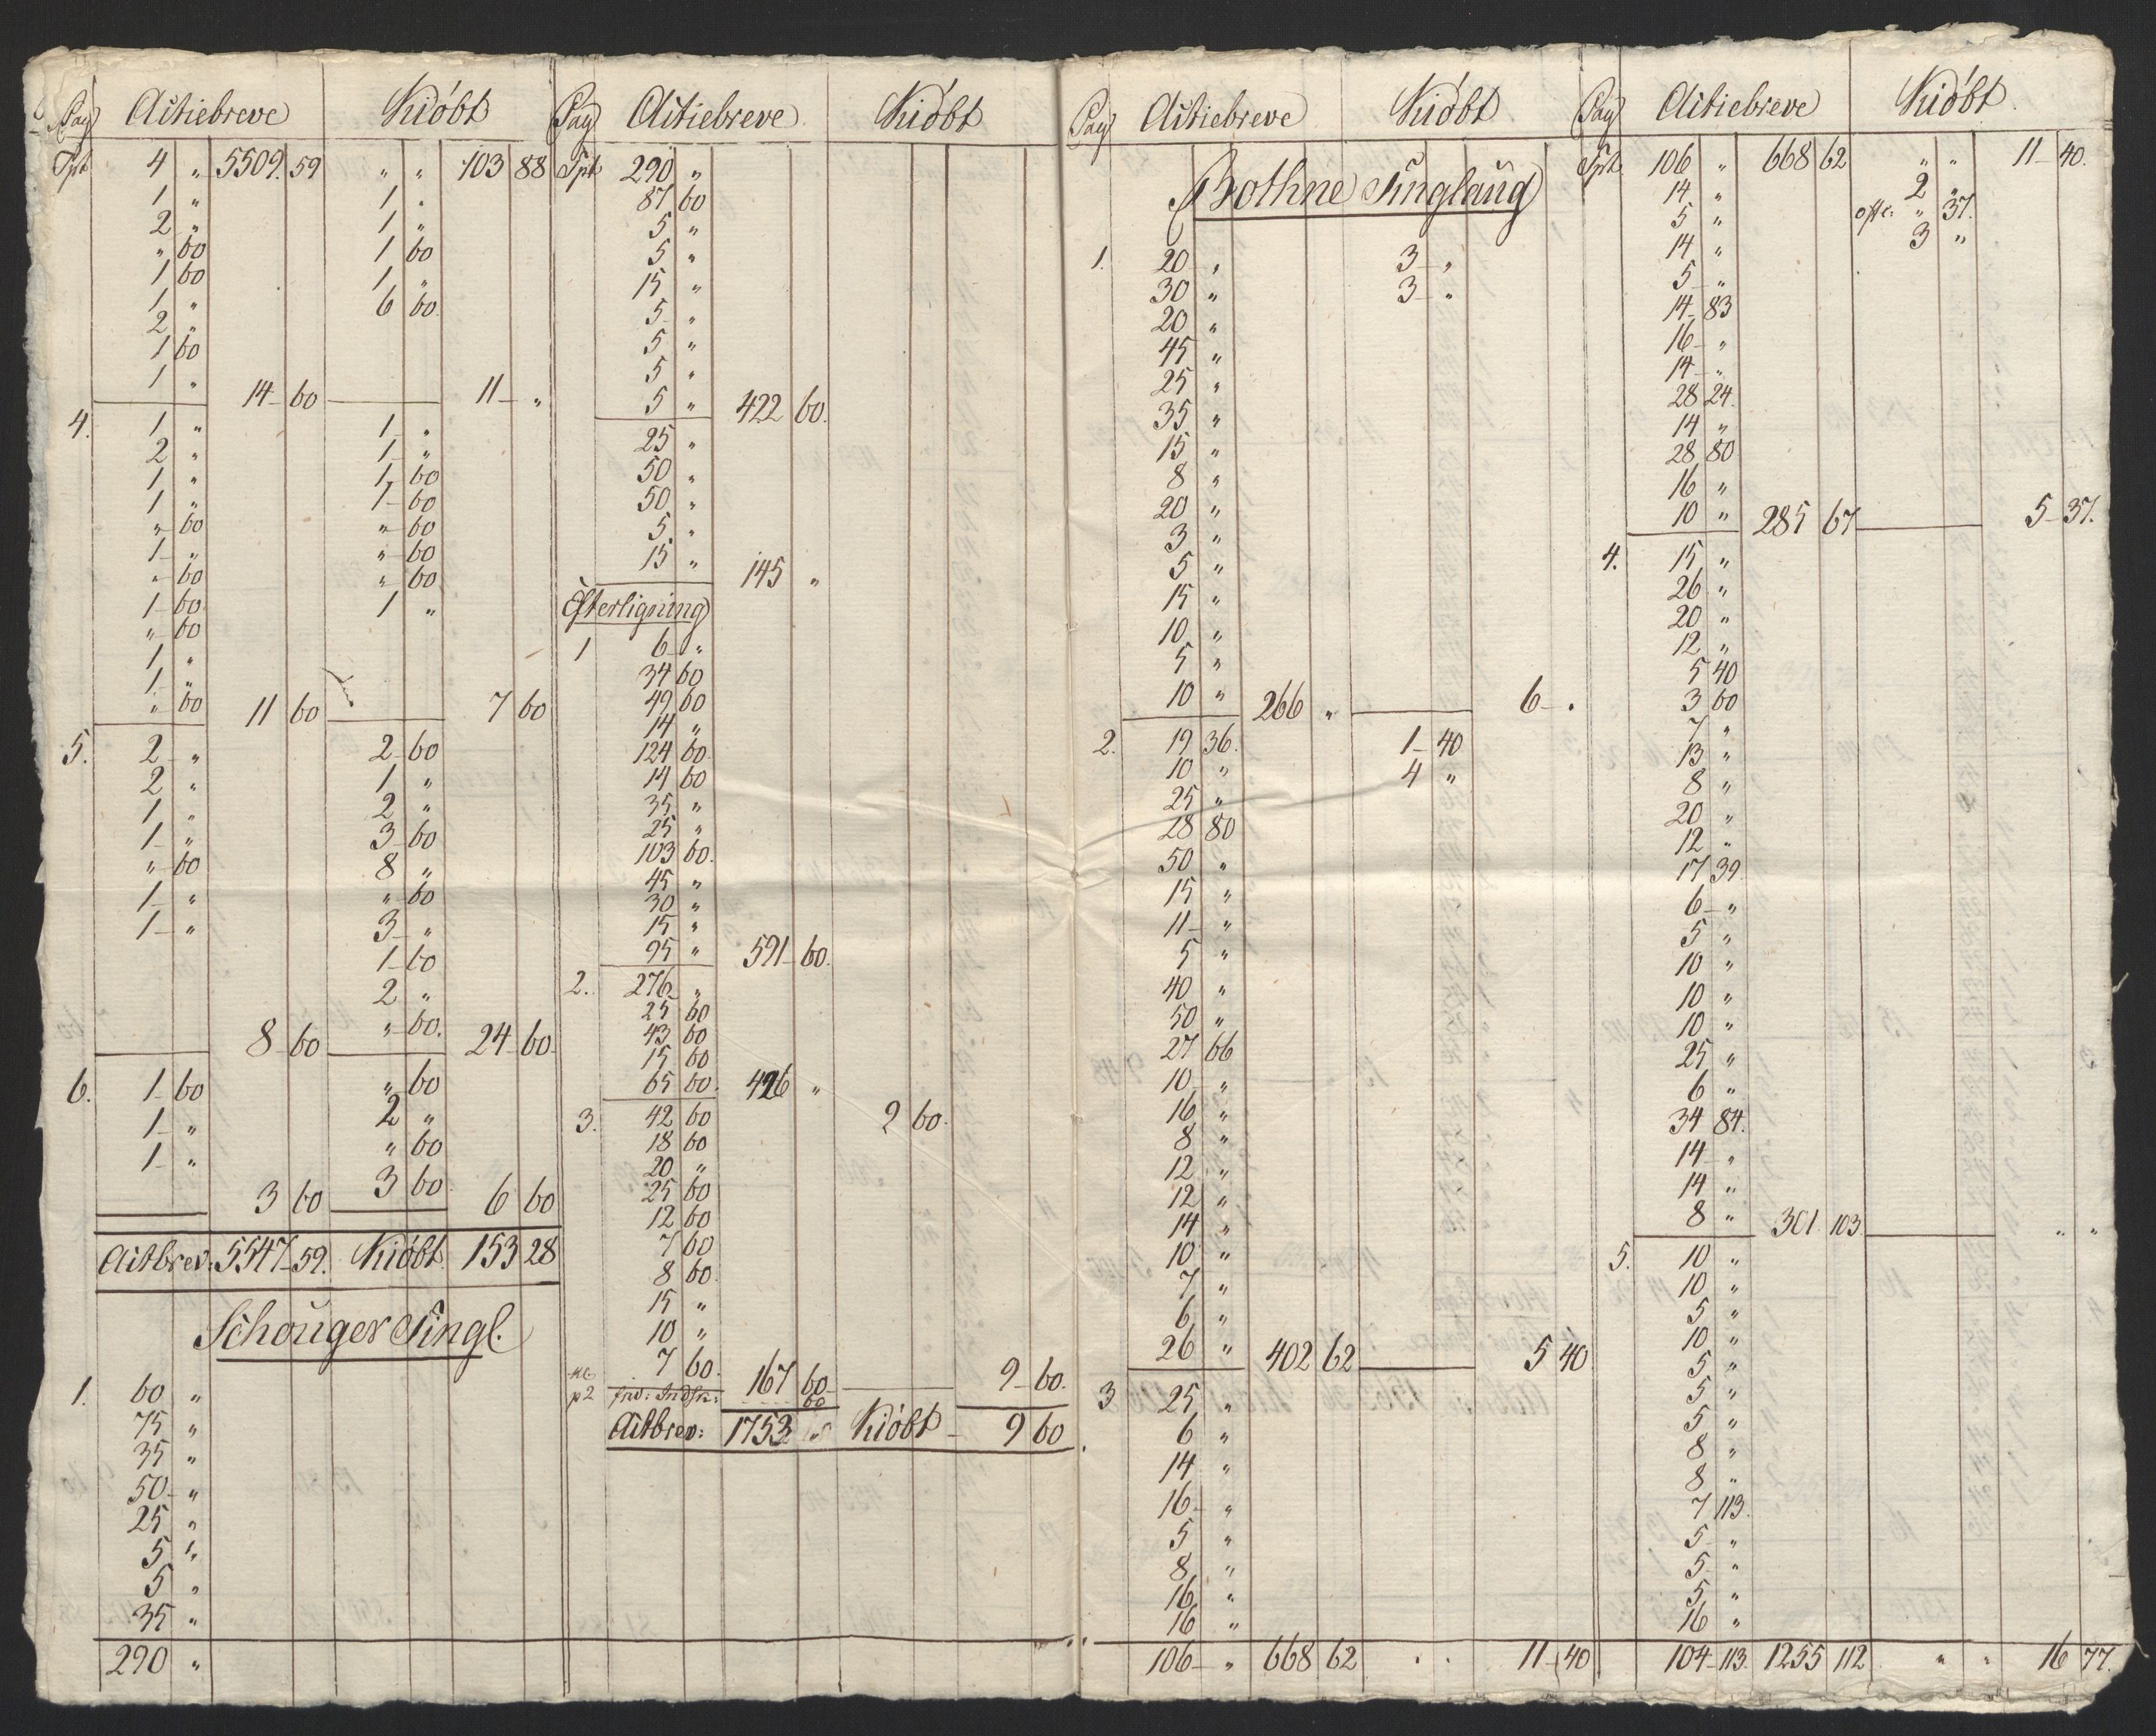 Pag Actiebreve Kiöbt
Tpt 4 " 5509. 59 " " 103 88
1 " 1 "
2 " 1 "
" 60 1 60
1 60 1 "
1 " 6 60.
2 "
1 60
1 " 14 60 11 "
4. 1 " 1 "
2 " 1 "
1 " 1 60
1 " 1 60
" 60 " 60
1 " " 60
" 60 " 60
1 60 1 "
" 60
1 "
1 "
" 60 11 60 7 60
5. 2 " 2 60
2 " 1 "
1 " 2 "
1 " 3 60
" 60 8 "
1 " " 60
1 " 3 "
1 60
2 "
" 60.
8 60 24 60
6. 1 60 " 60
1 " 2 "
1 " " 60
3 60 3 60 6 60
Actbrev: 5547 59. Kiöbt 153 28
Schouger Tingl.
1. 60 "
75 "
35 "
50 "
25 "
5 "
5 "
35 "
290 "
Pag Actiebreve Kiöbt
Tpt 290 "
87 60
5 "
5 "
15 "
5 "
5 "
5 "
5 " 422 60.
25 "
50 "
50 "
5 "
15 " 145 "
Efterligning
1 6 "
34 60
49 60
14 "
124 60
14 60
35 "
25 "
103 60.
45 "
30 "
15 "
95 " 591 60.
2. 276 "
25 60
43 60
15 60
65 60. 426 "
3. 42 60 9 60.
18 60
20 "
25 60
12 60
7 60
8 60.
15 "
10 "
7 60. 167 60 9 60.
p2 60
Actbrev: 1753 " Kiöbt 9 60
Pag Actiebreve Kiöbt
Bothne Tinglaug
1. 20 " 3 "
30 " 3 "
20 "
45 "
25 "
35 "
15 "
8 "
20 "
3 "
5 "
15 "
10 "
5 "
10 " 266 " 6 "
2. 19 36. 1 40
10 " 4 "
25 "
28 80
50 "
15 "
11 "
5 "
40 "
50 "
27 66
10 "
16 "
8 "
12 "
12 "
14 "
10 "
7 "
6 "
26 " 402 62 5 40
3 25 "
6 "
14 "
16 "
5 "
8 "
16 "
16 "
106 " 668 62 " " 11 40
Pag Actiebreve Kiöbt.
Tpt. 106 " 668 62 " " 11 40.
14 " 2 "
5 " " 37.
14 " 3 "
5 "
14 83
16 "
14 "
28 24.
14 "
28 80
16 "
10 " 285 67 5 37.
4. 15 "
26 "
20 "
12 "
5 40
3 60
7 "
13 "
8 "
20 "
12 "
17 39
6 "
5 "
10 "
10 "
10 "
25 "
6 "
34 84.
14 "
14 "
8 " 301 103 " "
5. 10 "
10 "
5 "
10 "
5 "
5 "
5 "
8 "
8 "
7 113.
5 "
5 "
5 "
16 "
104 113. 1255 112 " " 16 77.